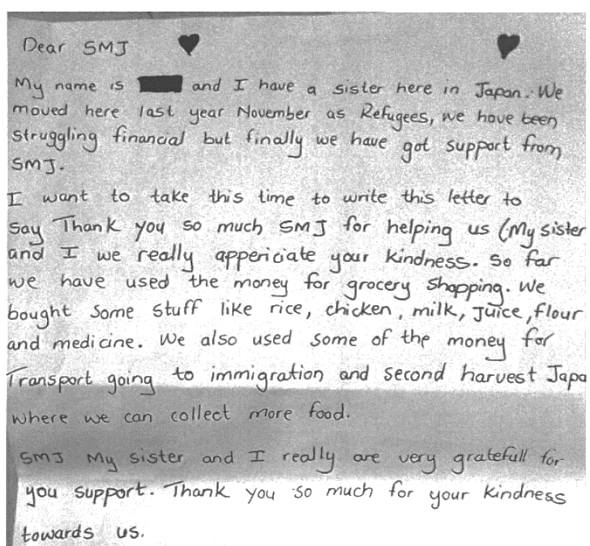 Dear SMJ
My name is and I have a sister here in Japan. We
moved here last year November as Refugees, we have been
struggling financial but finally we have got support from
SMJ.
I want to take this time to write this letter to
say Thank you so much SMJ for helping us (My sister
and I we really appericiate your kindness. So far
we have used the money for grocery shopping. We
bought some stuff like rice, chicken, milk, Juice, flour
and medicine. We also used some of the money for
Transport going to immigration and second harvest Japa
where we can collect more food.
SMJ My sister and I really are very gratefull for
you support. Thank you so much for your kindness
towards us.